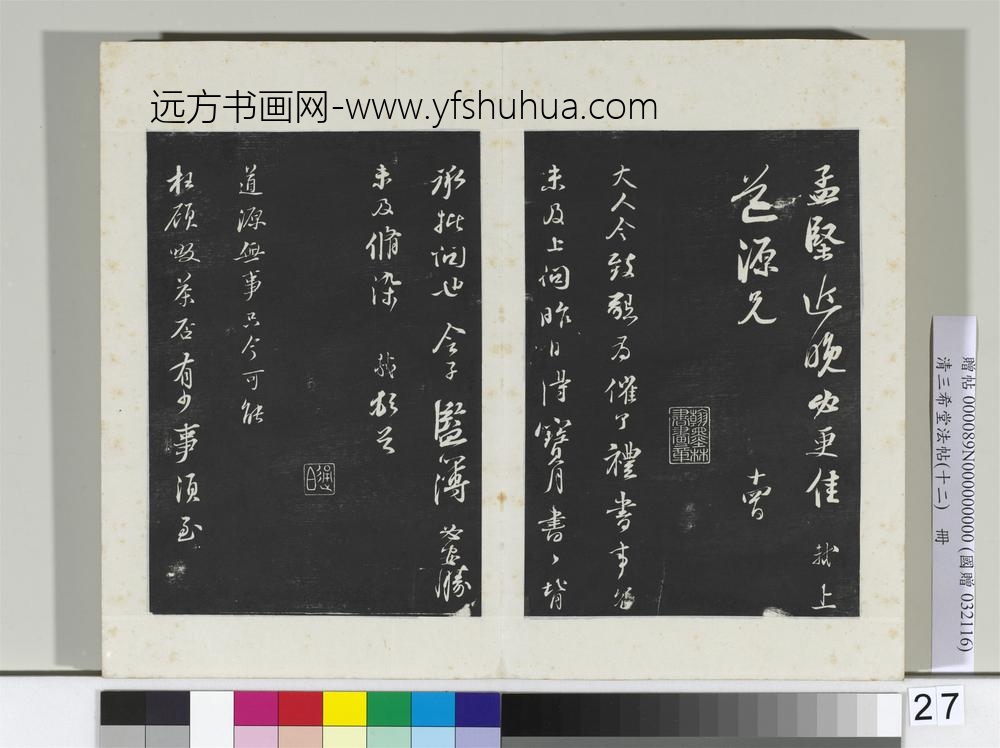 远方书画网-www.yfshuhua.com
孟堅近晚必更佳 軾上
道源兄
十四
大人令致懇為催了禮書事冗
未及上問昨日得寶月書〻背
承批問也 令子監簿必安勝
未及脩染 軾頓首
道源無事只今可能
枉顧啜茶否有少事須至
翰墨林書畫章
贈帖 000089N000000000 (國贈 032116)
清三希堂法帖(十二) 冊
27